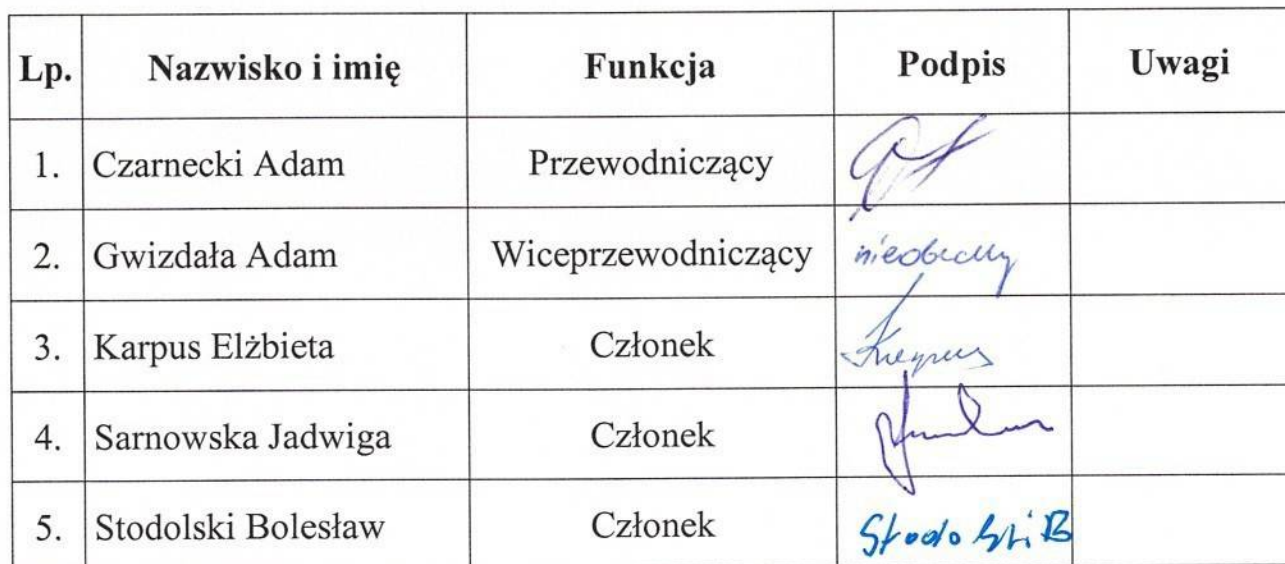 Lp. Nazwisko i imię Funkcja Podpis Uwagi
1. Czarnecki Adam Przewodniczący
2. Gwizdała Adam Wiceprzewodniczący nieobecny
3. Karpus Elżbieta Członek Karpus
4. Sarnowska Jadwiga Członek
5. Stodolski Bolesław Członek Stodolski B